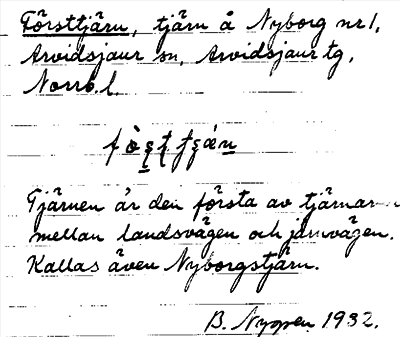 Försttjärn, tjärn å Nyborg nr 1,
Arvidsjaur sn, Arvidsjaur tg,
Norrb. l.
Tjärnen är den första av tjärnar
mellan landsvägen och järnvägen.
Kallas även Nyborgstjärn.
B. Nygren 1932.